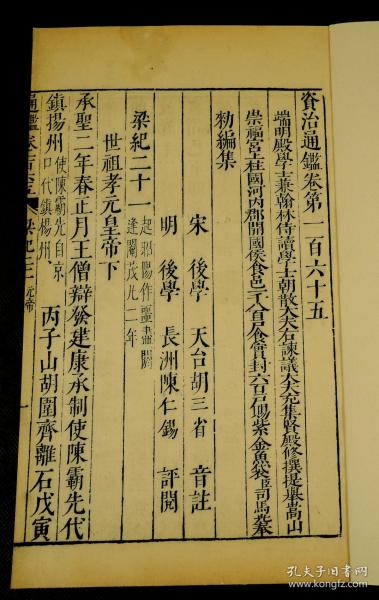 資治通鑑卷第一百六十五
端明殿學士兼翰林侍讀學士朝散大夫右諫議大夫充集賢殿修撰提舉嵩山
崇福宮上柱國河內郡開國侯食邑一千八百戶食實封六百戶賜紫金魚袋臣司馬光奉
勅編集
宋 後學 天台胡三省 音註
明 後學 長洲陳仁錫 評閱
梁紀二十一 起昭陽作噩盡閼逢閹茂凡二年
世祖孝元皇帝下
承聖二年春正月王僧辯發建康承制使陳霸先代
鎮揚州 使陳霸先自京口代鎮揚州 丙子山胡圍齊離石戊寅
通鑑卷一百六十五 梁紀二十一 元帝 一
孔夫子旧书网